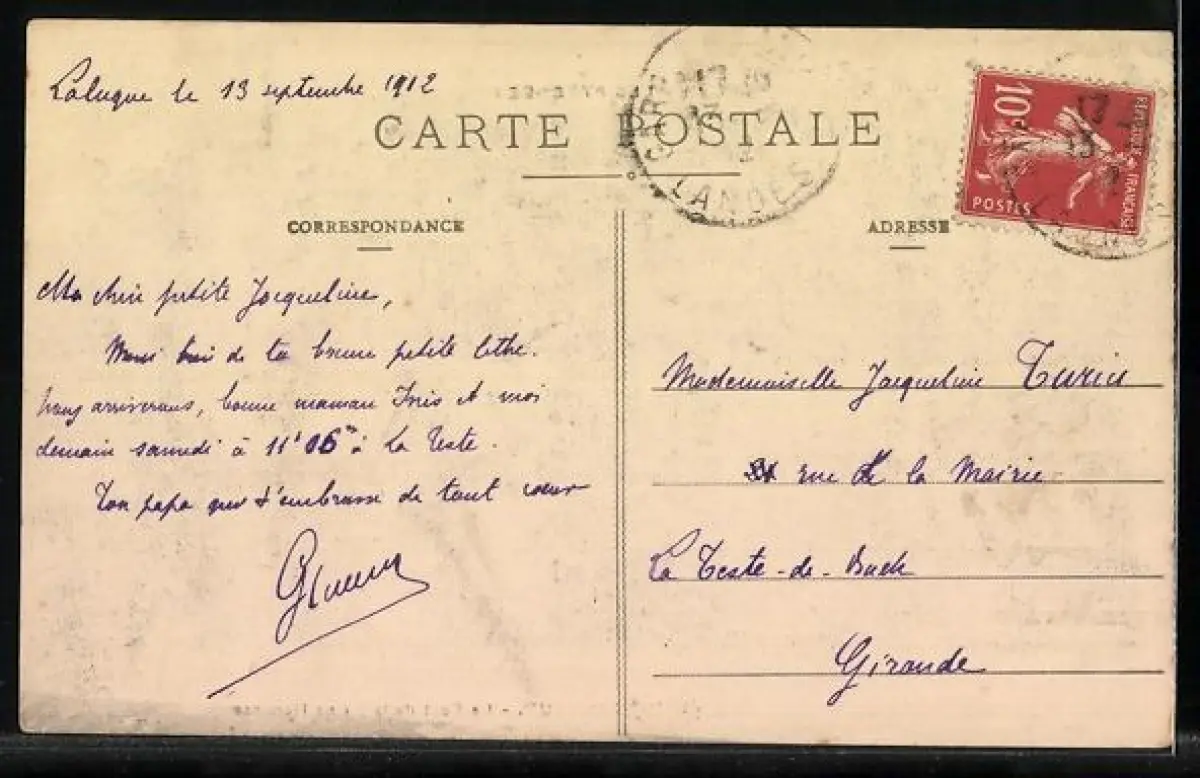 Laluque le 13 septembre 1912
CARTE POSTALE
CORRESPONDANCE
ADRESSE
10c
POSTES
LANDES
Ma chère petite Jacqueline,
Merci de ta bonne petite lettre.
Nous arriverons, bonne maman Iris et moi
demain samedi à 11h06m à La Teste.
Ton papa qui t'embrasse de tout cœur
Mademoiselle Jacqueline
rue de la Mairie
La Teste-de-Buch
Gironde